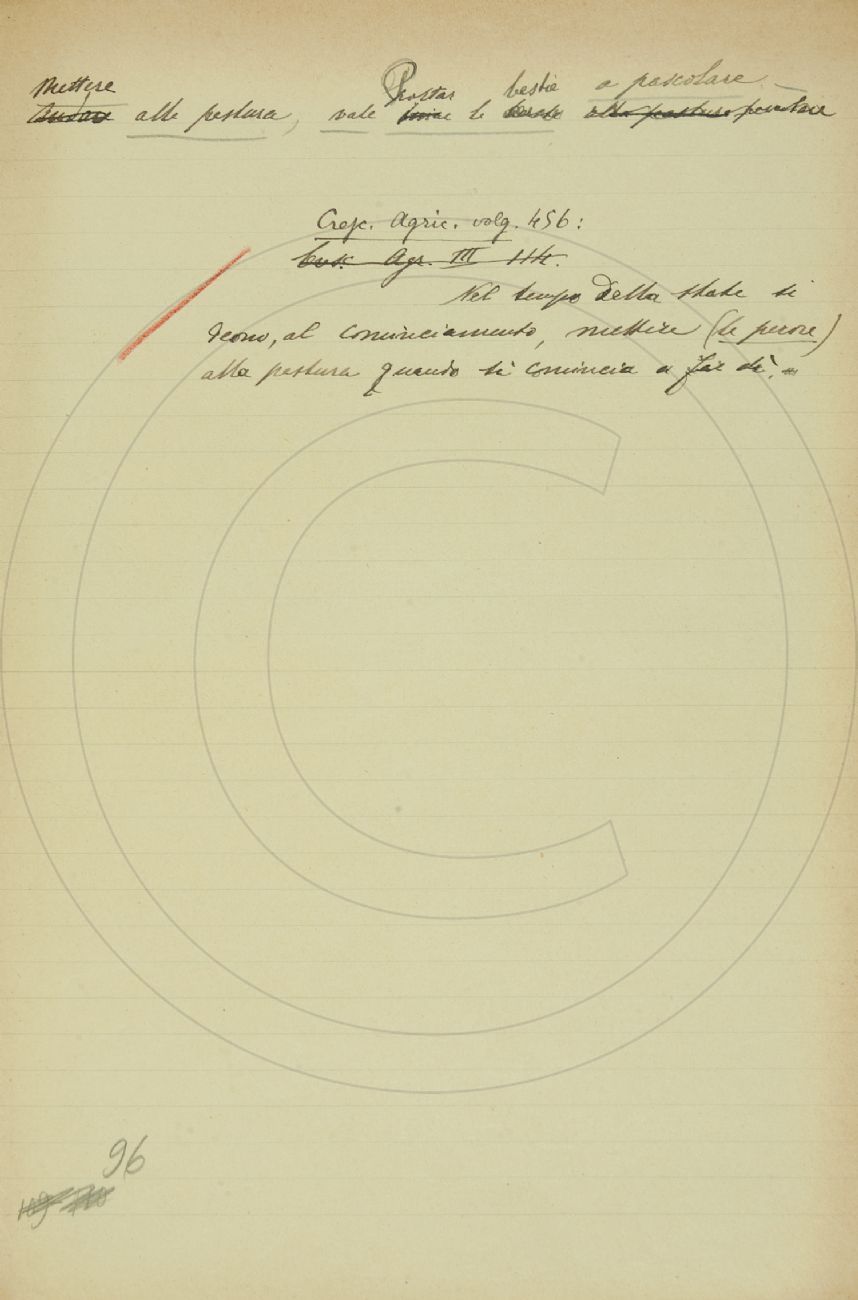 Mettere Portar bestie a pascolare
Andare alla pastura, vale le alla pastura pascolare
Cresc. Agric. volg. 456:
Cresc. Agr. III 114.
Nel tempo della state si
deono, al cominciamento, mettere (le pecore)
alla pastura quando si comincia a far dì.
96